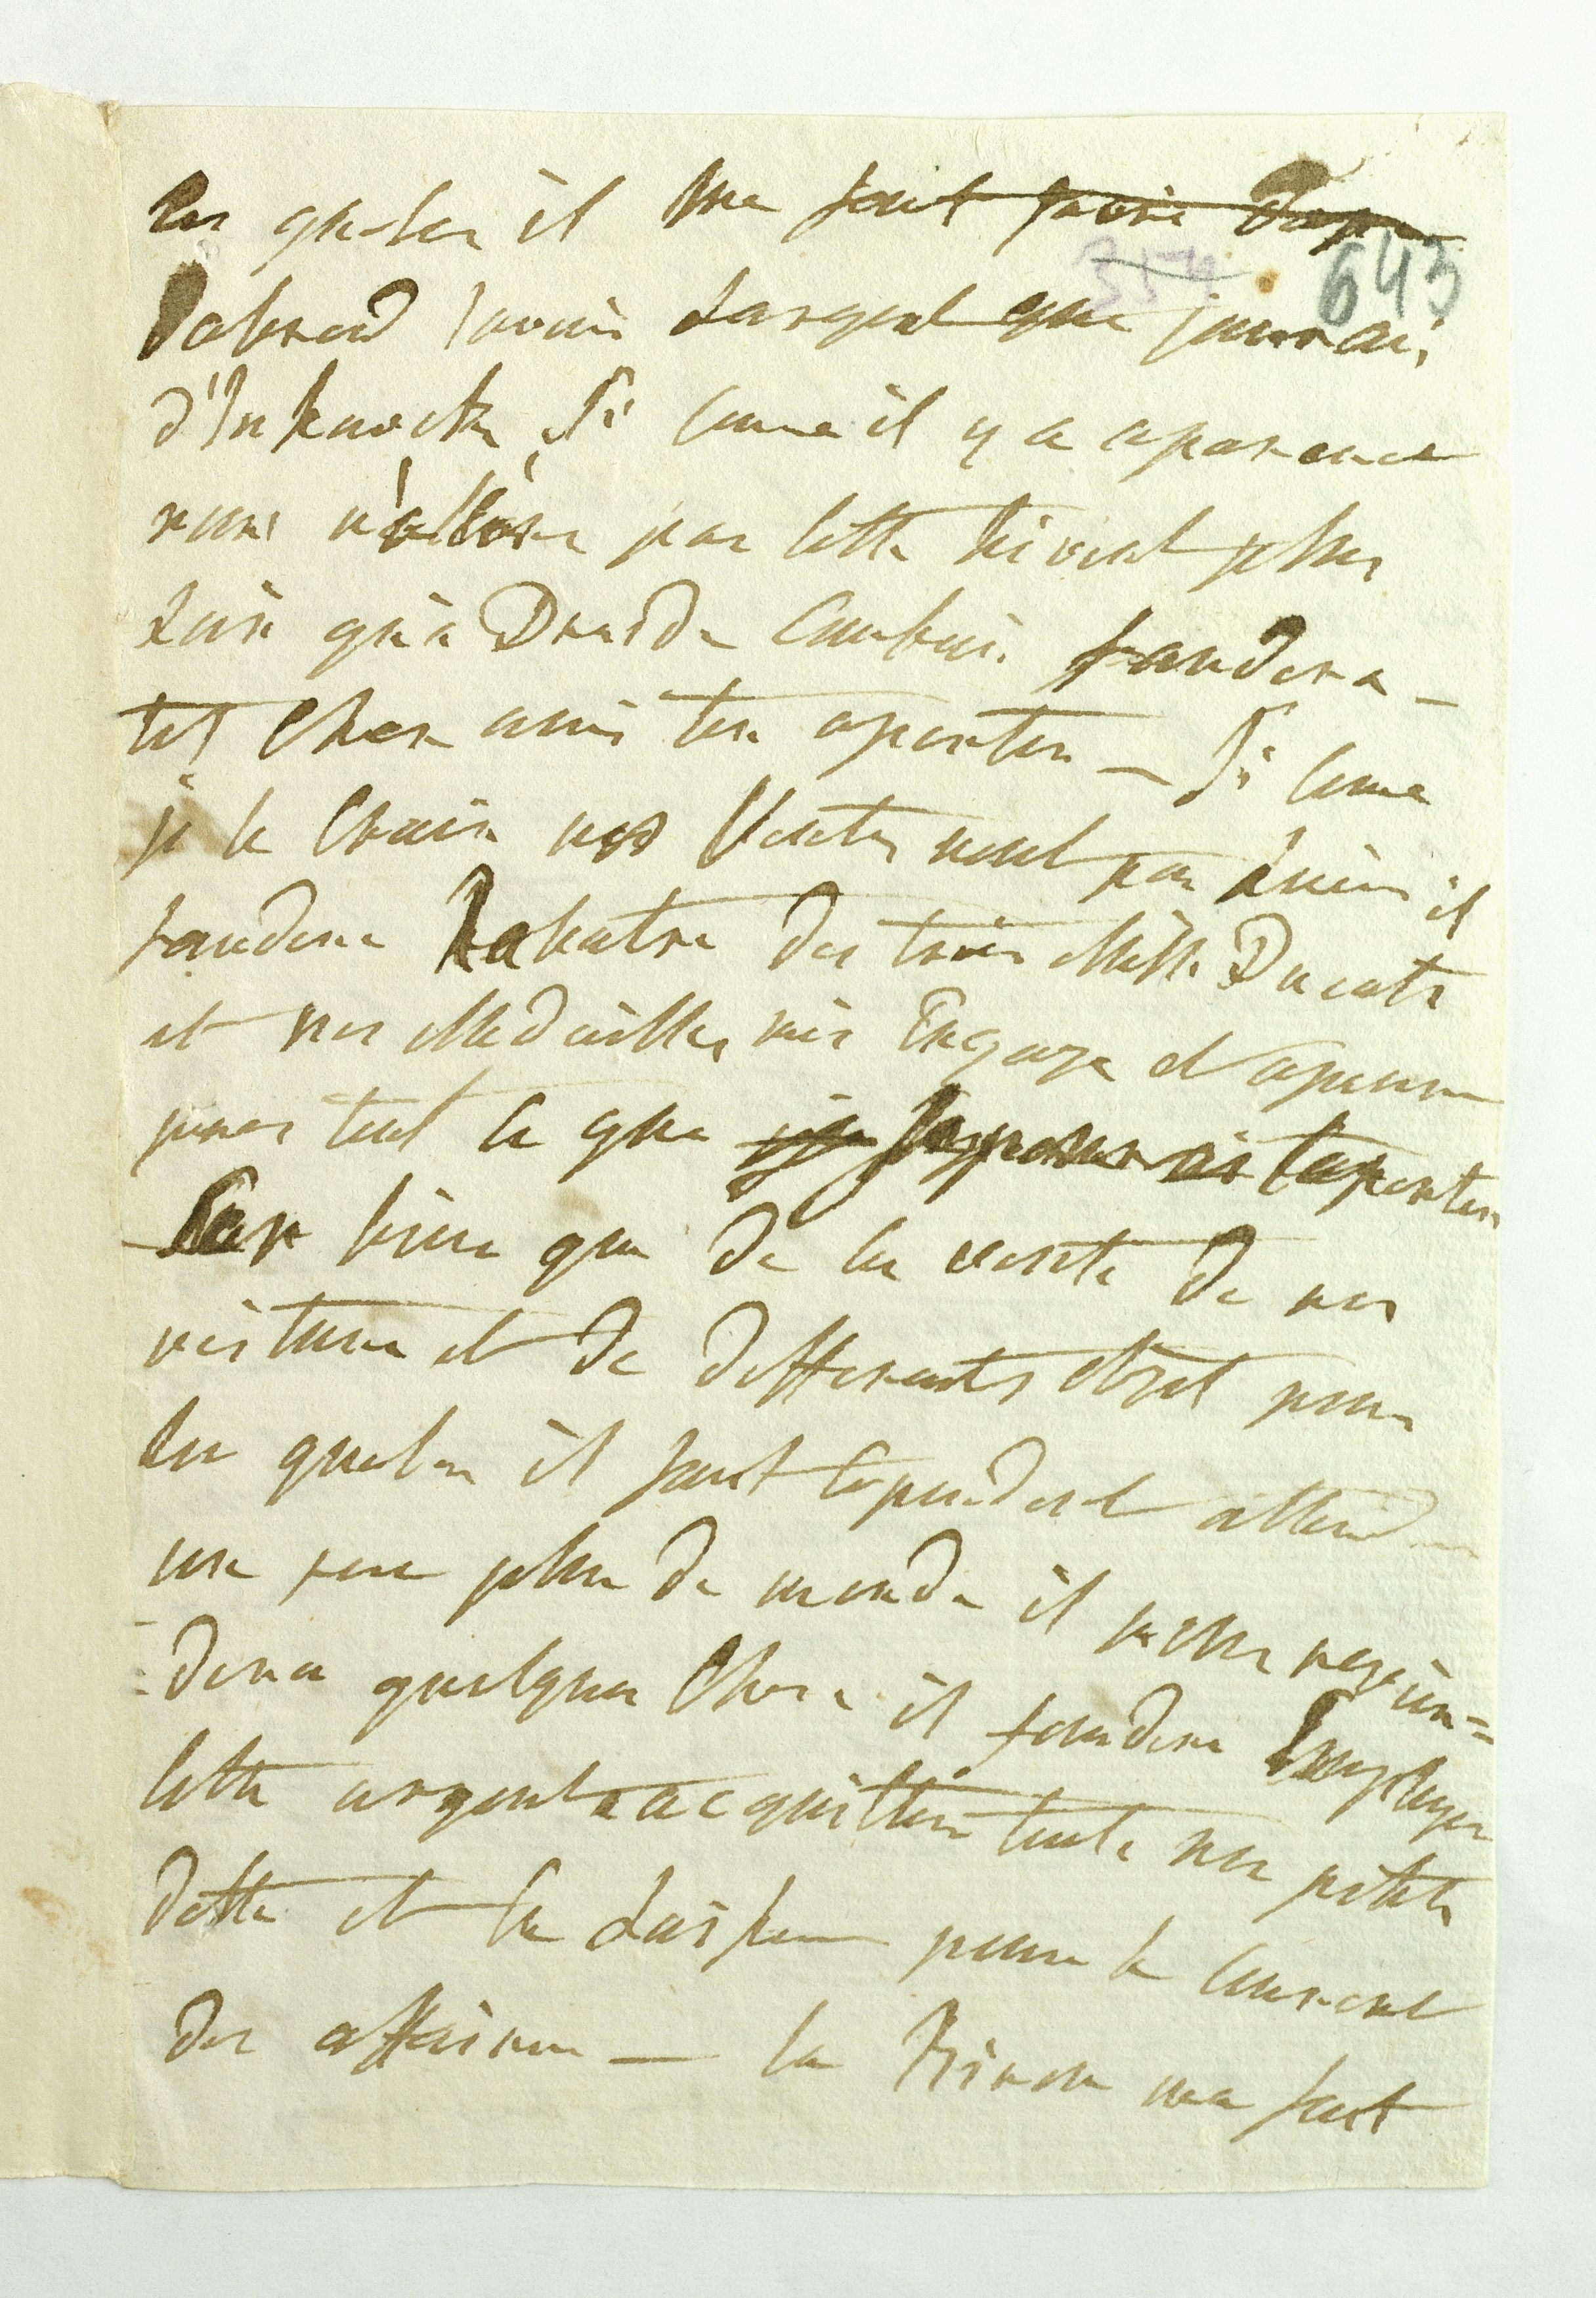 les queles il me faut savoir
643
Dabord savoir Largent que jaurai
d'Inkuvitz, Si come il y a aparence
nous n'allons pas cette hiver plus
Loin qu'a Dresde Combien faudera
til Cher ami ten aporter — Si come
je le Crain nos Ventes nont pas Lieu il
faudera Rabatre des trois Mille Ducats
et nos Medailles mis Engage et apeine
pouvoir tout ce que je pourois taporter
Car bien que de la vente de nos
voiture et de differents objet pour
les queles il faut cependent attendre
un peu plus de monde il nous revien=
dera quelque Chose il faudera Employer
cette argent a acquitter toute nos petite
dette et le Laisser pour le courent
des affaires — la Princ ma fait